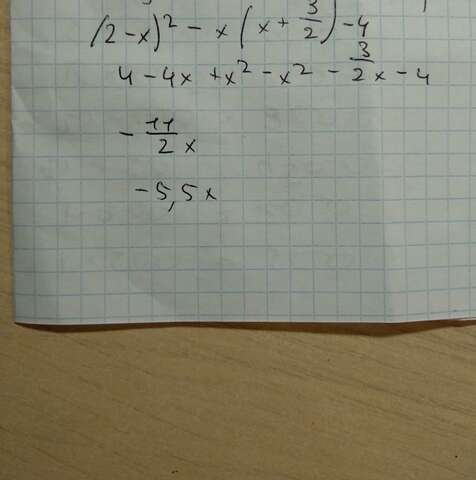 (2-x)² - x(x + 3/2) - 4
4 - 4x + x² - x² - 3/2 x - 4
- 11/2 x
- 5,5x